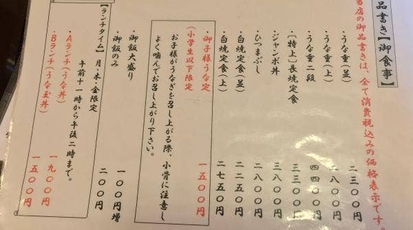 品書き【御食事】
当店の御品書きは、全て消費税込みの価格表示です。
・うな重(並) 二三〇〇円
・うな重(上) 二八〇〇円
・うな重二段 四四〇〇円
・(特上)長焼定食
・ジャンボ丼
・ひつまぶし 二八〇〇円
・白焼定食(並)
・白焼定食(上) 二七五〇円
・御子様うな定 一五〇〇円
(小学生以下限定)
お子様がうなぎを召し上がる際、小骨に注意し
よく噛んでお召し上がり下さい。
・御飯大盛り 一〇〇円増
・御飯のみ 二〇〇円
【ランチタイム】月・木・金限定
午前十一時から午後二時まで。
・Aランチ(うな丼) 一九〇〇円
・Bランチ(うな玉丼) 一五〇〇円